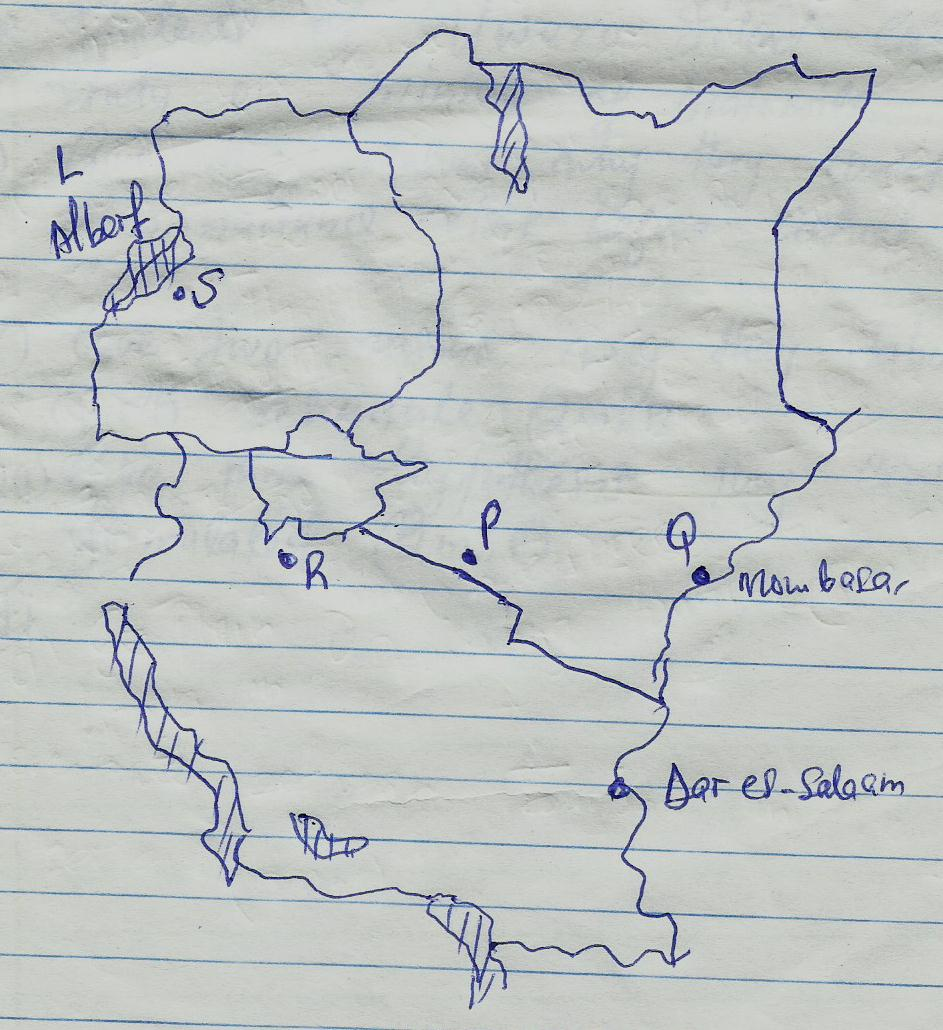 L
Albert
S
P
Q
R
Mombasa,
Dar es-Salaam